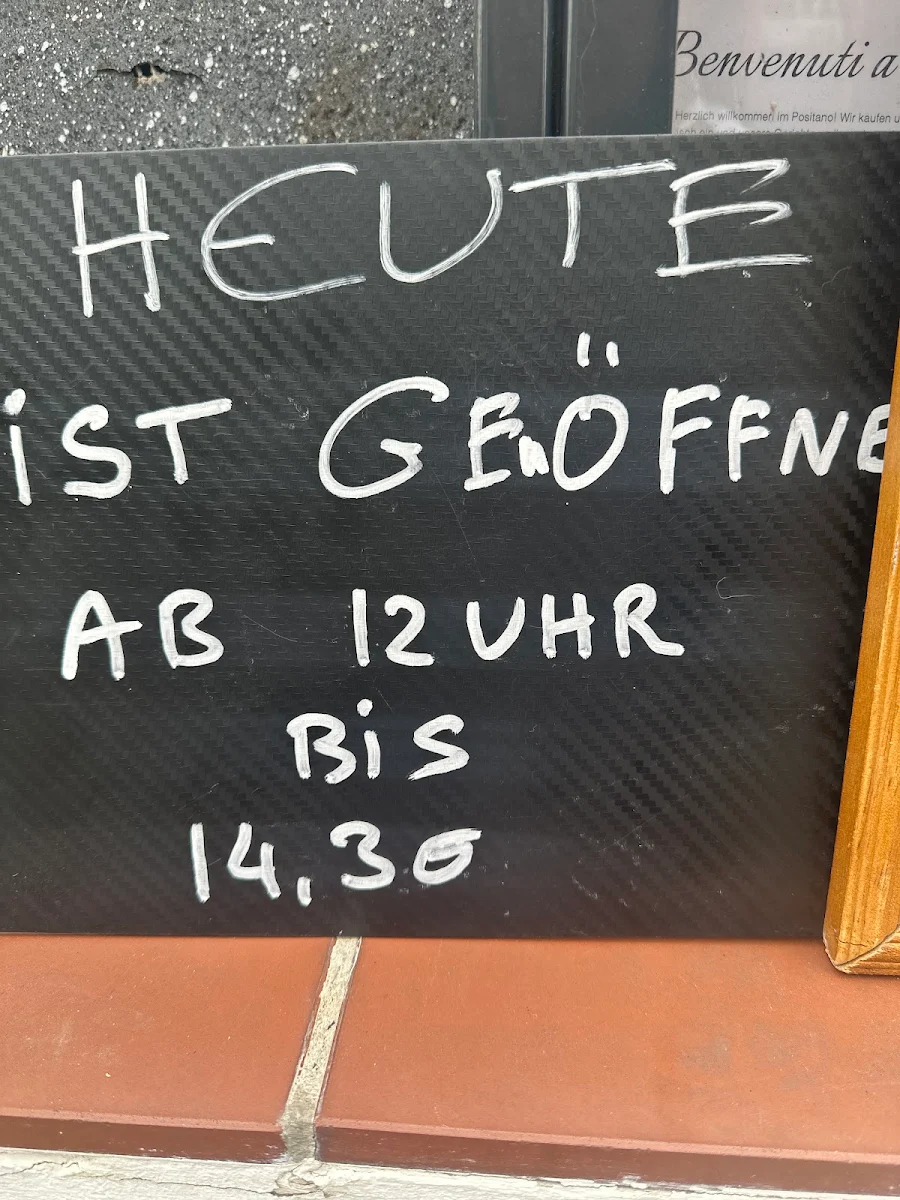 Benvenuti a
Herzlich willkommen im Positano! Wir kaufen u
HEUTE
iST GEÖFFNE
AB 12 UHR
BiS
14,30